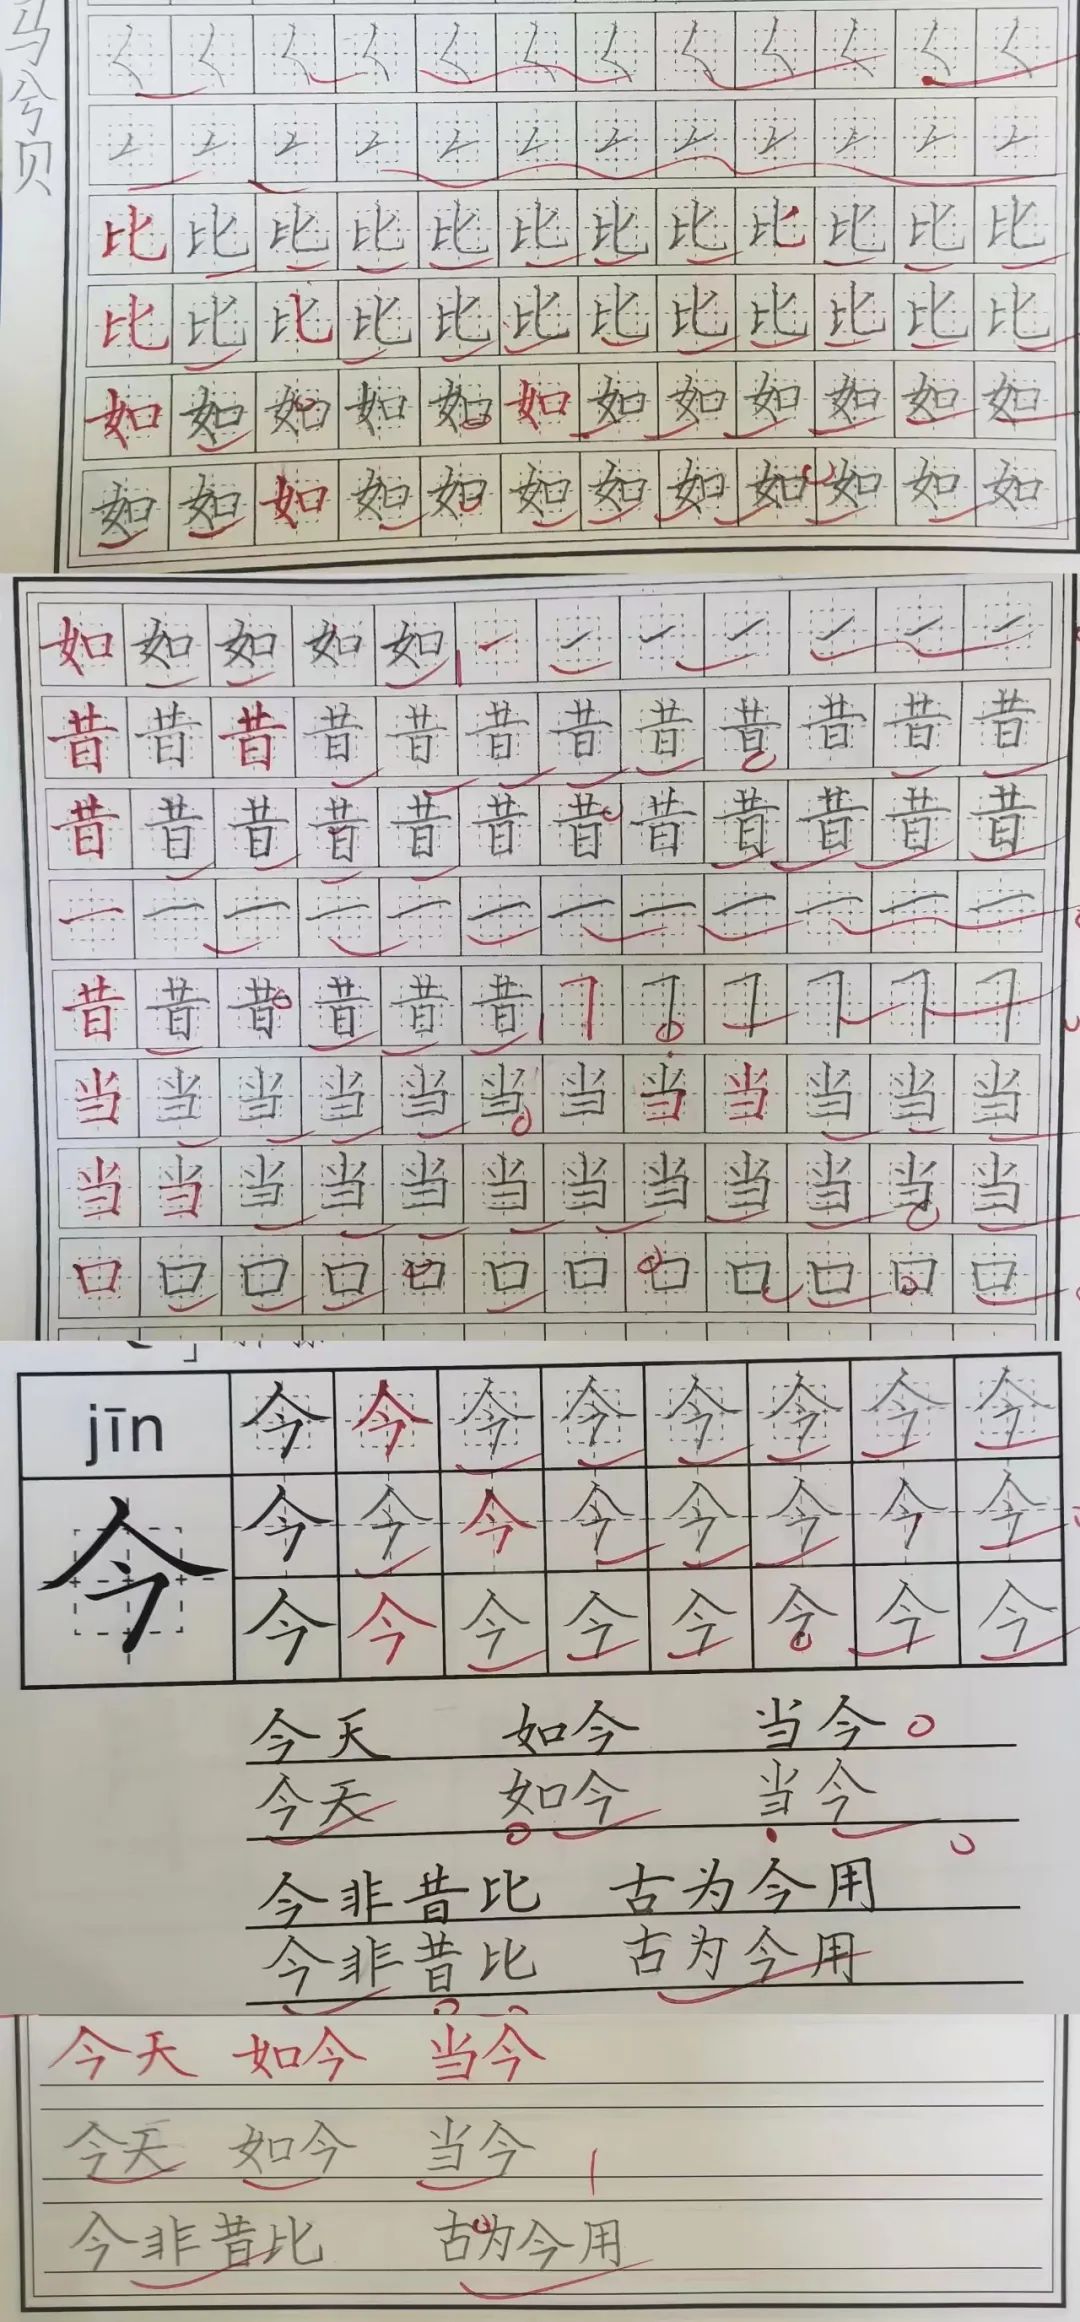 马
兮
贝
比 比 比 比 比 比 比 比 比 比 比 比
比 比 比 比 比 比 比 比 比 比 比 比
如 如 如 如 如 如 如 如 如 如 如 如
如 如 如 如 如 如 如 如 如 如 如 如
如 如 如 如 如
昔 昔 昔 昔 昔 昔 昔 昔 昔 昔 昔 昔
昔 昔 昔 昔 昔 昔 昔 昔 昔 昔 昔 昔
一 一 一 一 一 一 一 一 一 一 一 一
昔 昔 昔 昔 昔 昔
当 当 当 当 当 当 当 当 当 当 当 当
当 当 当 当 当 当 当 当 当 当 当 当
口 口 口 口 口 口 口 口 口 口 口 口
jīn 今 今 今 今 今 今 今 今
今 今 今 今 今 今 今 今 今
今 今 今 今 今 今 今 今
今天 如今 当今
今天 如今 当今
今非昔比 古为今用
今非昔比 古为今用
今天 如今 当今
今天 如今 当今
今非昔比 古为今用